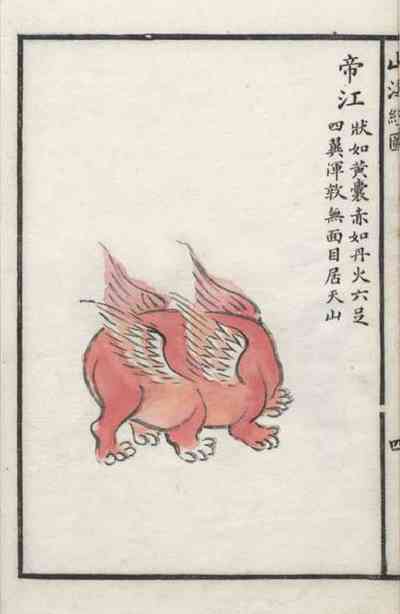 山海經圖
四
帝江
狀如黃囊赤如丹火六足
四翼渾敦無面目居天山